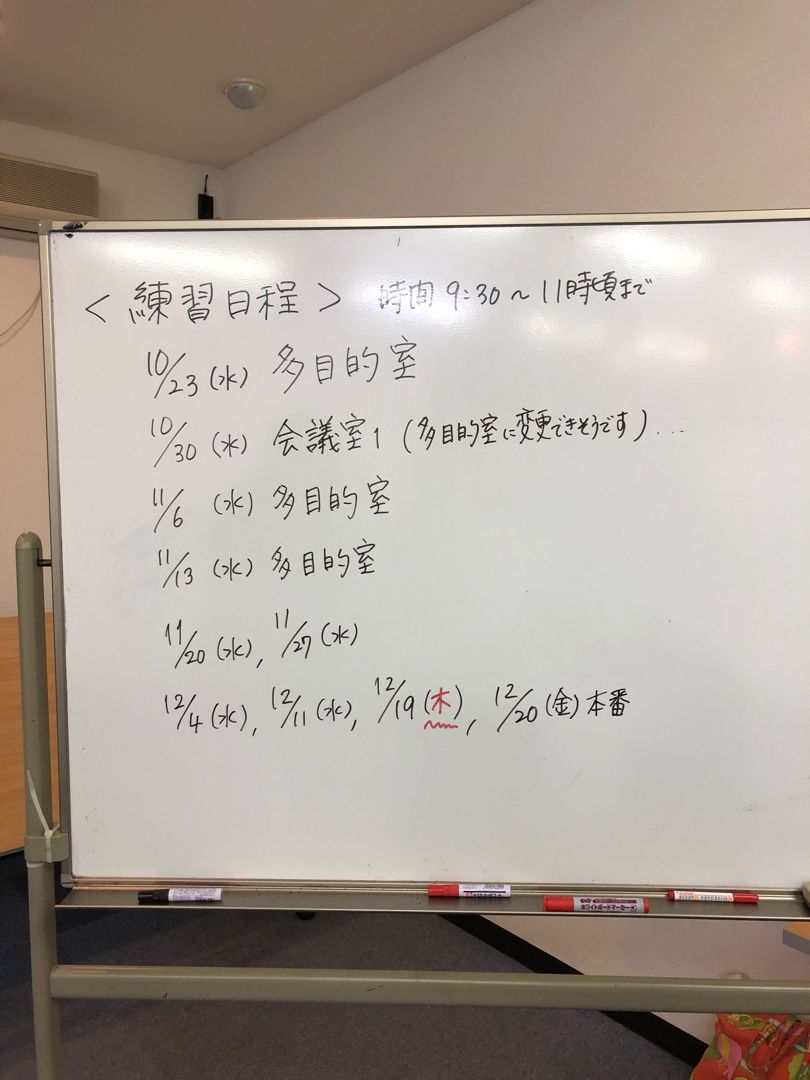 ＜練習日程＞ 時間 9:30～11時頃まで
10/23(水) 多目的室
10/30(水) 会議室1 (多目的室に変更できそうです)...
11/6 (水) 多目的室
11/13 (水) 多目的室
11/20(水), 11/27(水)
12/4(水), 12/11(水), 12/19(木), 12/20(金)本番
ホワイトボードマーカー